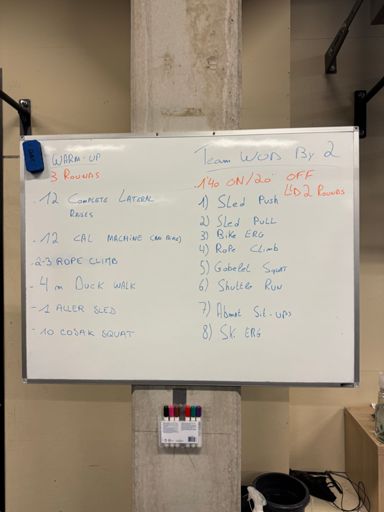 WARM-UP
3 ROUNDS
- 12 COMPLETE LATERAL
RAISES
- 12 CAL MACHINE (NO BIKE)
- 2-3 ROPE CLIMB
- 4 m DUCK WALK
- 1 ALLER SLED
- 10 COSAK SQUAT
TEAM WOD By 2
1'40 ON/20" OFF
2 ROUNDS
1) SLED PUSH
2) SLED PULL
3) BIKE ERG
4) ROPE CLIMB
5) GOBELET SQUAT
6) SHUTTLE RUN
7) ABMAT SIT-UPS
8) SKI ERG